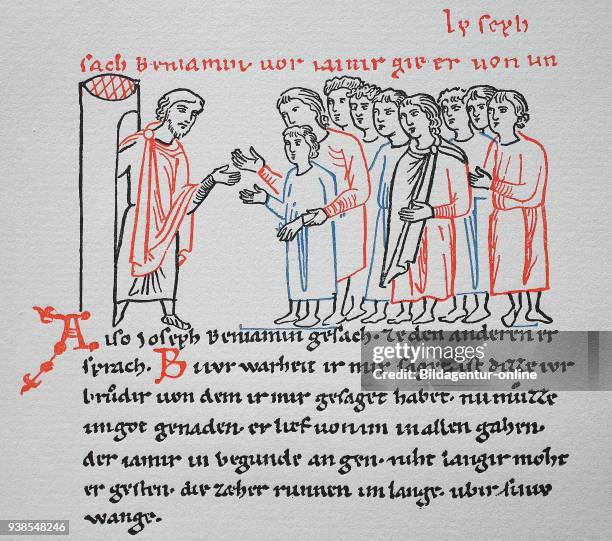 Joseph
sach Beniamin vor iamir gie er von un
Also Joseph Beniamin gesach. ze den anderen er
sprach. Bi iwr warheit ir mir saget ist ditze iwr
brůdir von dem ir mir gesaget habet. nu můzze
im got genaden. er lief von im in allen gahen.
der iamir in begunde an gen. niht langir moht
er gesten. die zaher runnen im lange. ubir siniv
wange.
gettyimages
Credit: Bildagentur-online
938548246